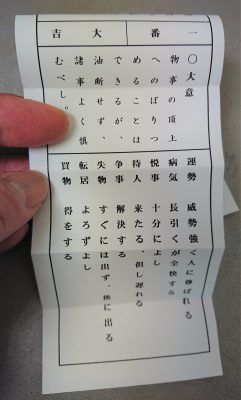 一番
大吉
〇大意
物事の頂上
へのぼりつ
めることは
できるが、
油断せず、
諸事よく慎
むべし。
運勢 威勢強く人に尊ばれる
病気 長引くが全快する
悦事 十分によし
待人 来たる、但し遅れる
争事 解決する
失物 すぐには出ず、後に出る
転居 よろずよし
買物 得をする